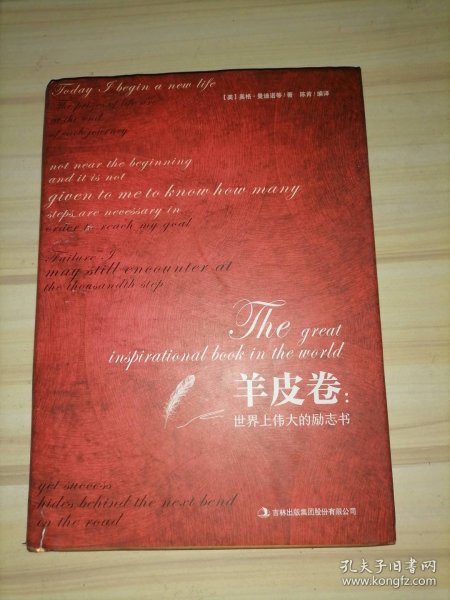 Today I begin a new life
[美]奥格·曼迪诺等/著 陈肯/编译
The prizes of life are
at the end
of each journey
not near the beginning
and it is not
given to me to know how many
steps are necessary in
order to reach my goal
Failure I
may still encounter at
the thousandth step
The great
inspirational book in the world
羊皮卷:
世界上伟大的励志书
yet success
hides behind the next bend
in the road
吉林出版集团股份有限公司
孔夫子旧书网
www.kongfz.com